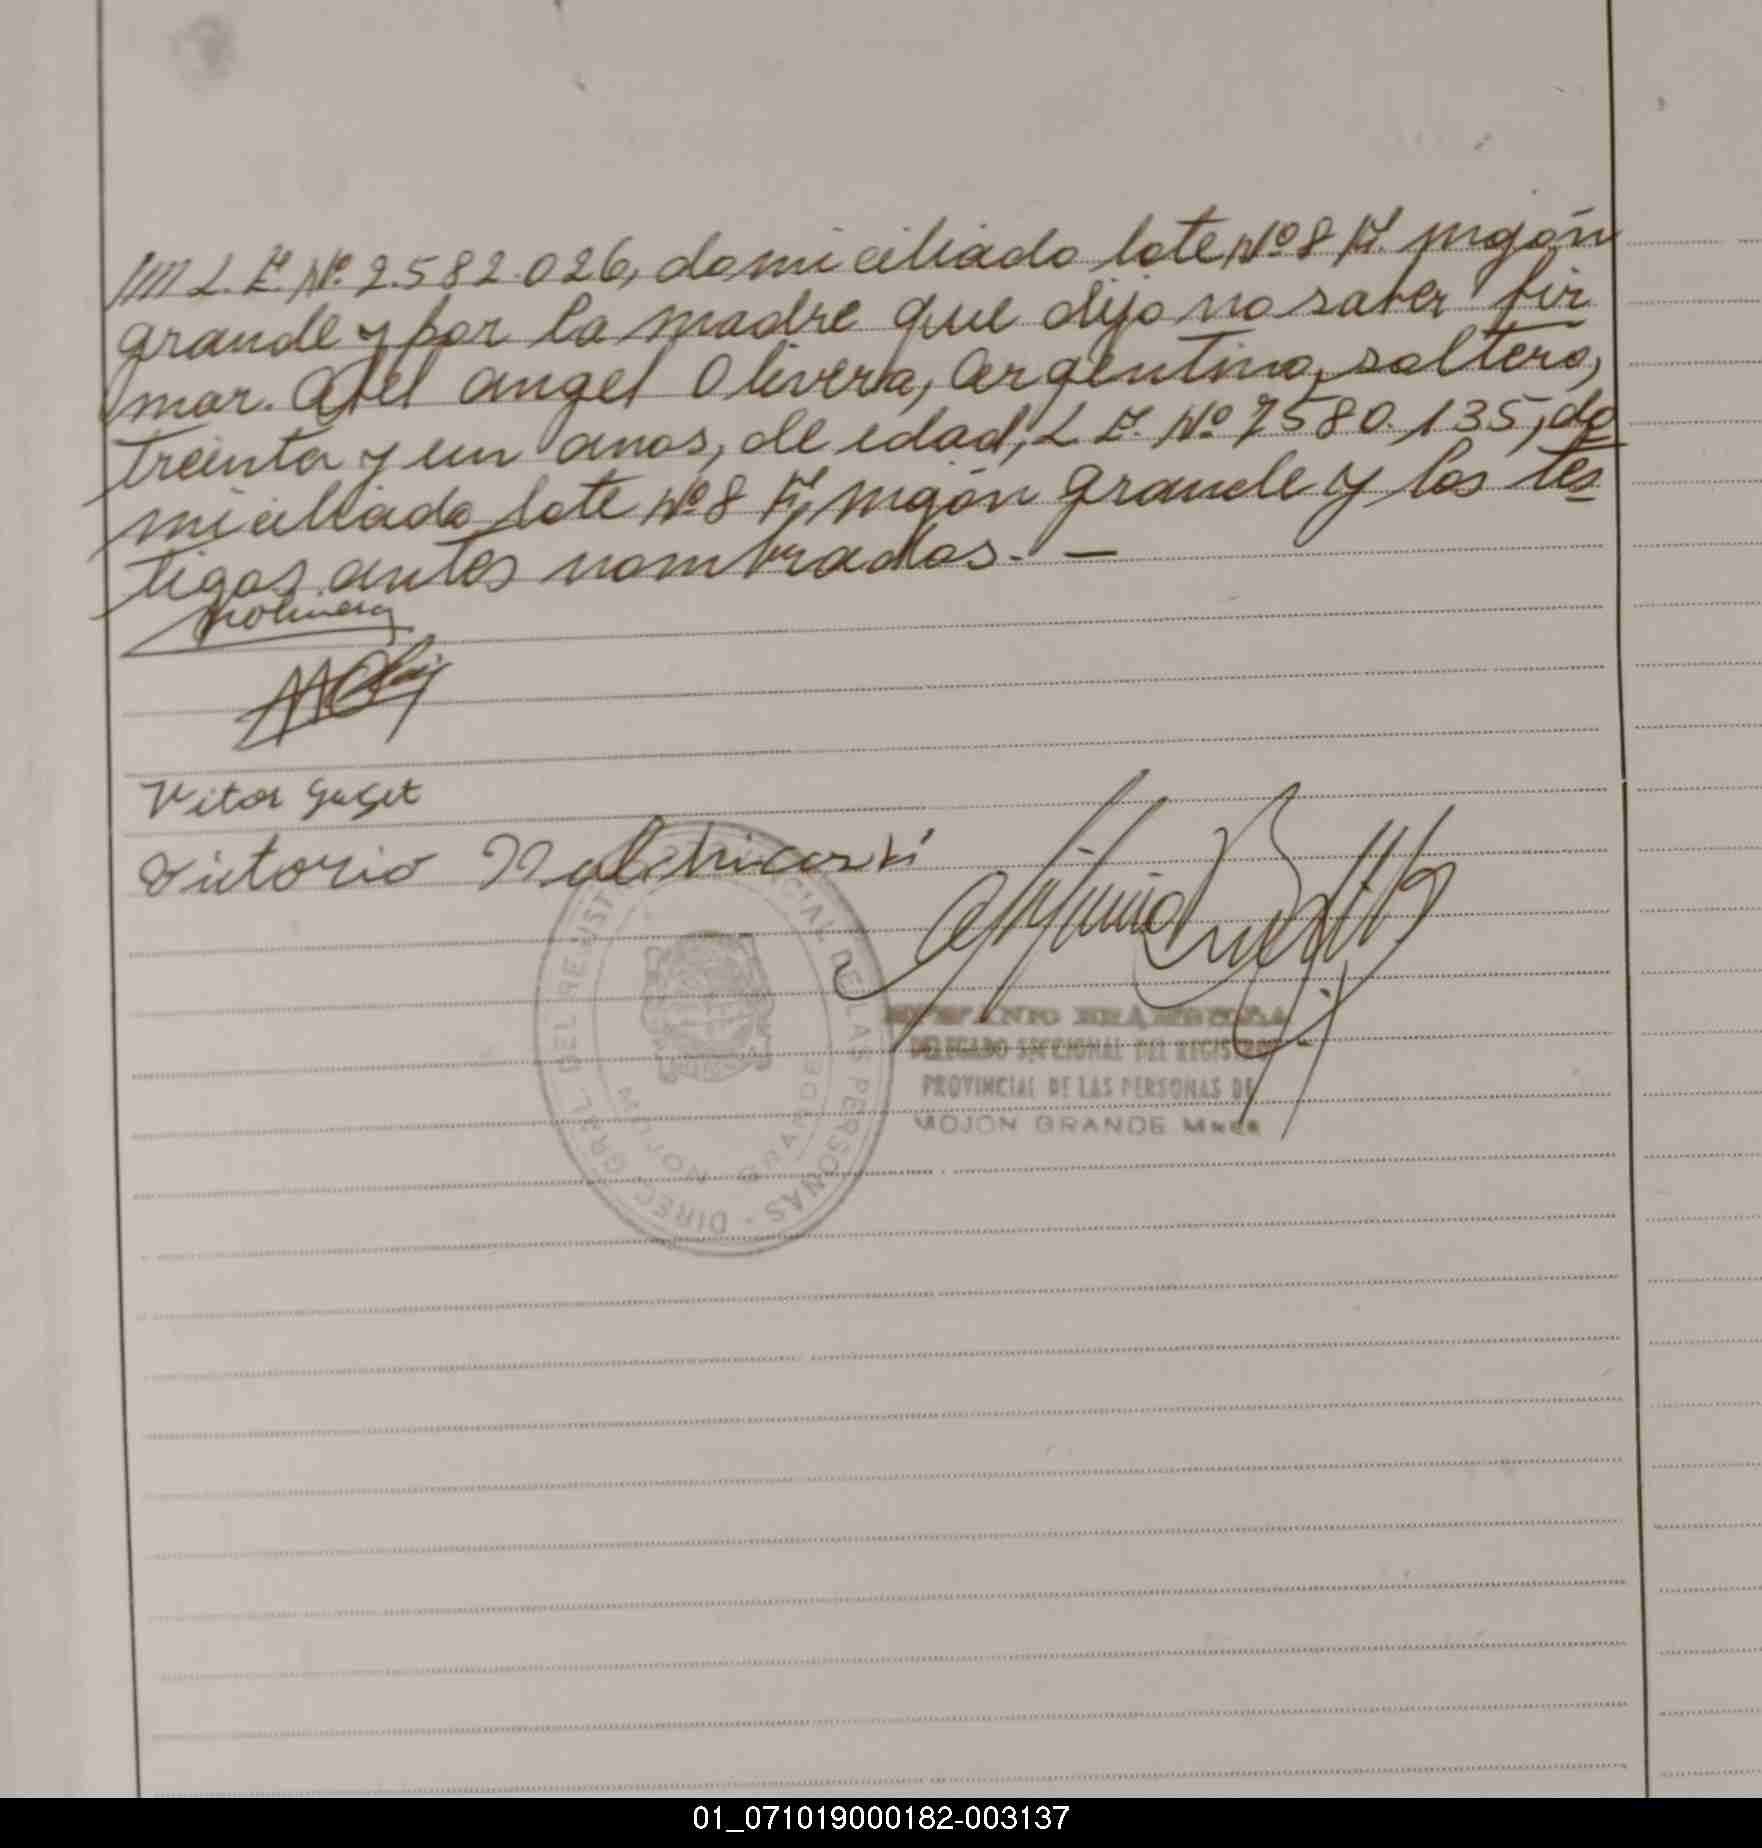 //// L.E. Nº. 2.582.026, domiciliado lote Nº 8 F. mojón
grande y por la madre que dijo no saber fir
mar. Abel angel Olivera, argentino, soltero,
treinta y un anos, de edad, L.E. Nº 7580.135, do
miciliado lote Nº 8 F, mojón grande y los tes
tigos antes nombrados. —
Vitor
Victorio
DIREC. GRAL. DEL REGISTRO PROVINCIAL DE LAS PERSONAS
MOJON GRANDE
DELEGADO SECCIONAL DEL REGISTRO
PROVINCIAL DE LAS PERSONAS DE
MOJON GRANDE Mnes
01_071019000182-003137